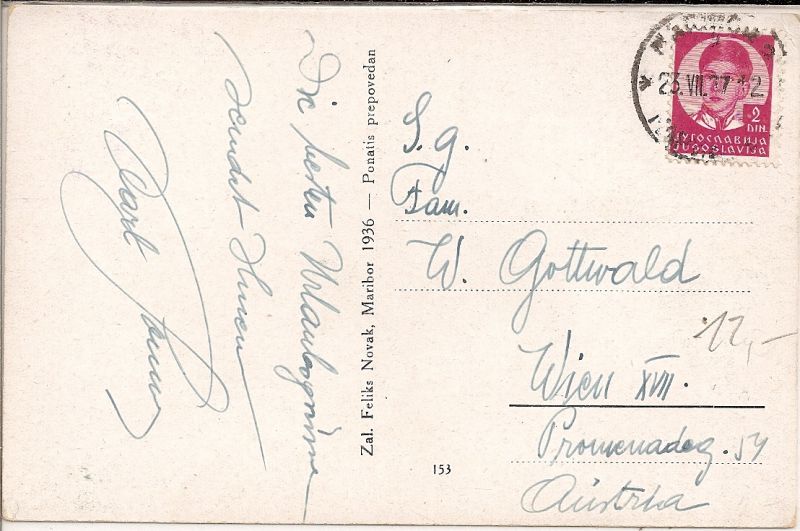 Die besten Urlaubsgrüsse
sendet Ihnen
Karl
Zal. Feliks Novak, Maribor 1936 — Ponatis prepovedan
153
23.VII.37 12
2
DIN.
ЈУГОСЛАВИЈА
JUGOSLAVIJA
S. g.
Fam.
W. Gottwald
12,-
Wien XVII.
Promenadeg. 54
Austria